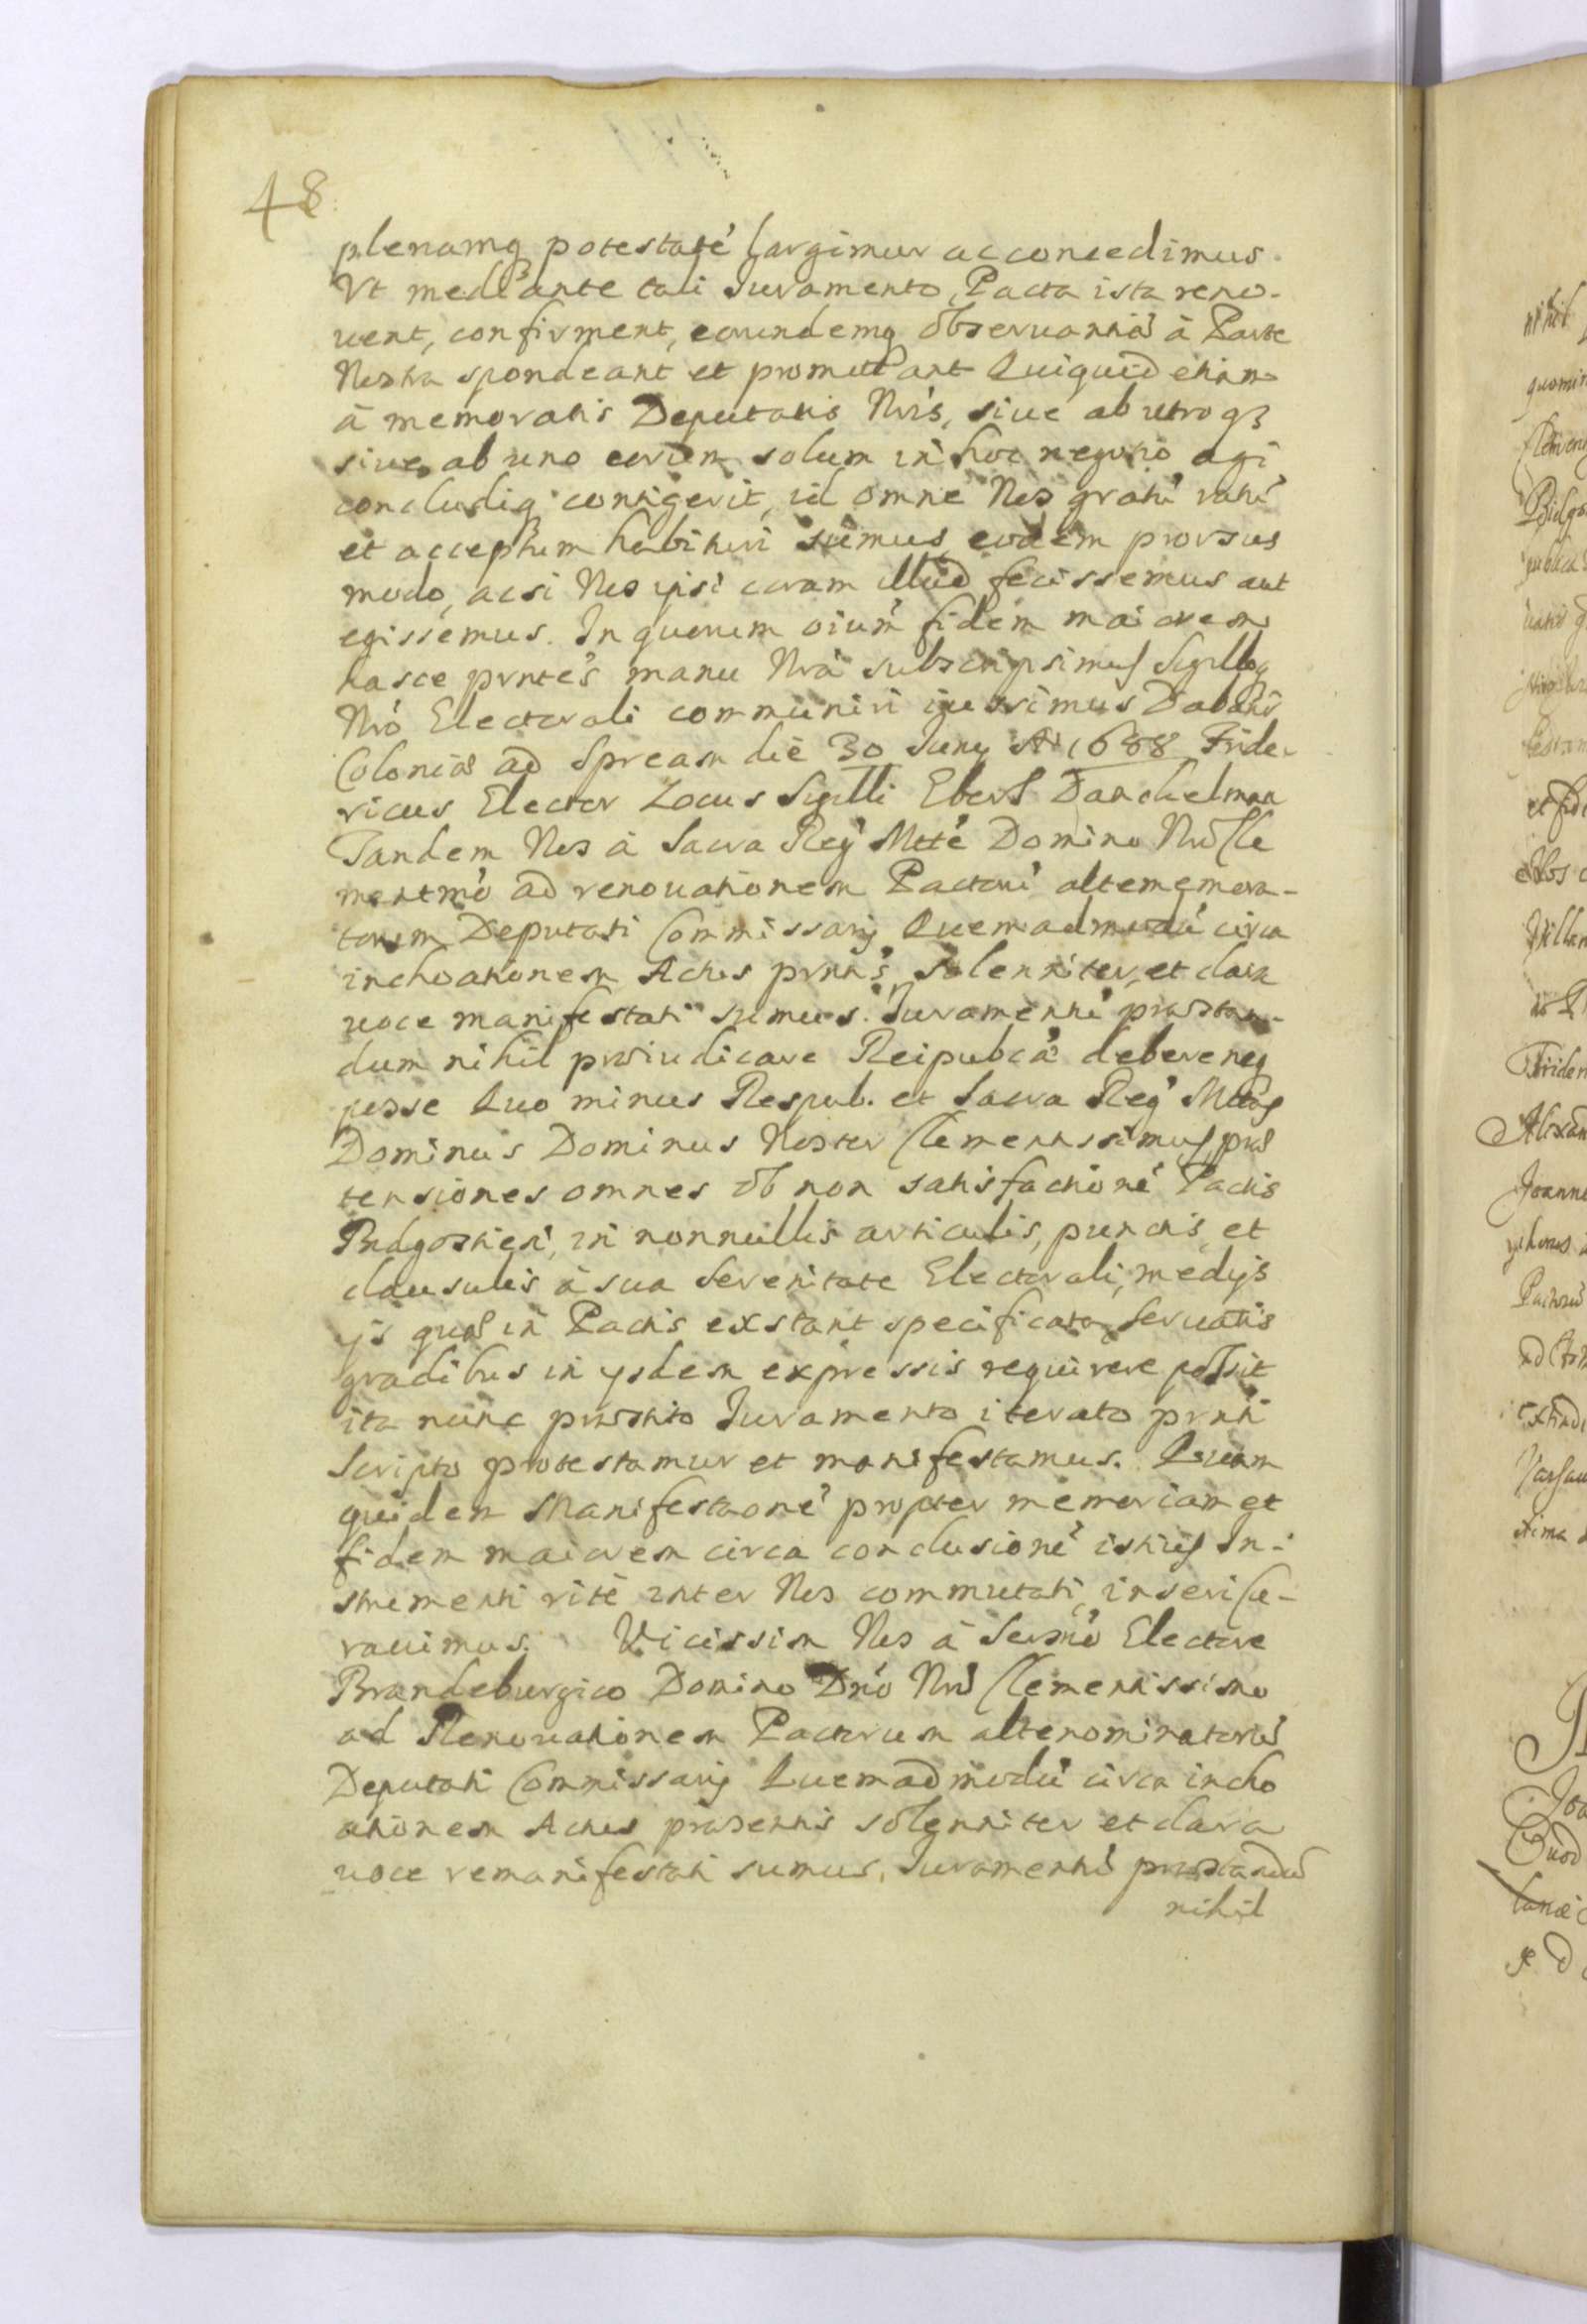 48
plenamq potestaté largimur ac concedimus.
Vt mediante tali Iuramento, Pacta ista reno-
uent, confirment, eorundemq observantiá à Parte
Nostra spondeant et promittant Quiquid etiam
à memoratis Deputatis Nris, siue ab utroqz
siue ab uno eorum solum in hoc negotio agi
concludiq contigerit, id omne Nos gratú ratú
et acceptum habituri sumus, eodem prorsus
modo, acsi Nos ipsi coram illud fecissemus aut
egissemus. In quorum oium fidem maiorem
hasce pretes manu Nra subscripsimus Sigilloq
Nro Electorali communiri iussimus Dabant
Coloniæ ad Spream die 30 Iuny Ao 1688 Fride-
ricus Elector Locus Sigilli Eberh Danckelman
Tandem Nos à Sacra Reg Mtte Domino Nro Cle
mentmo ad renouationem Pactorú altememora-
torum Deputati Commissarij Quemadmodú circa
inchoationem Actus prntis solenniter, et clara
uoce manifestati sumus. Iuramentú præstan-
dum nihil præiudicare Reipubcæ debere neq
posse Quo minus Respub. et Sacra Reg Mttas
Dominus Dominus Noster Clementissimus præ
tensiones omnes ob non satisfactioné Pactis
Bidgostien, in nonnullis articulis, punctis, et
clausulis à sua Serenitate Electorali, medijs
ijs quæ in Pactis exstant specificata, servatis
gradibus in ysdem expressis requirere possit
ita nunc præstito Iuramento iterato prnti
Scripto protestamur et manifestamus. Quam
quidem Manifestaoné propter memoriam et
fidem maiorem circa conclusioné istius In-
strumenti rité inter Nos commutati, inseri cu-
rauimus. Vicissim Nos à Sermo Electore
Brandeburgico Domino Dno Nro Clementissimo
ad Renouationem Pactorum altenominatorú
Deputati Commissarij Quemadmodú circa incho
ationem Actus præsentis solenniter et clara
uoce remanifestati sumus. Iuramentú præstandú
nihil